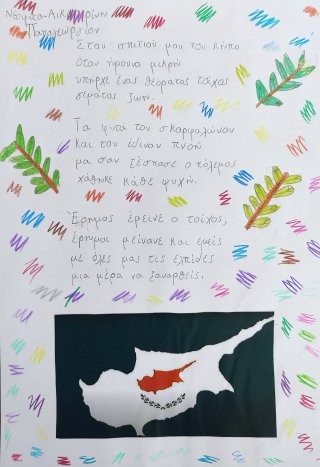 Παπαγεωργίου
Στου σπιτιού μου τον κήπο
όταν ήμουνα μικρή
υπήρχε ένας θεόρατος τοίχος
γεμάτος ζωή.
Τα φυτά τον σκαρφαλώναν
και του έδιναν πνοή
μα σαν ξέσπασε ο πόλεμος
χάθηκε κάθε ψυχή.
Έρημος έμεινε ο τοίχος,
έρημοι μείναμε και εμείς
με όλες μας τις ελπίδες
μια μέρα να ξαναρθείς.